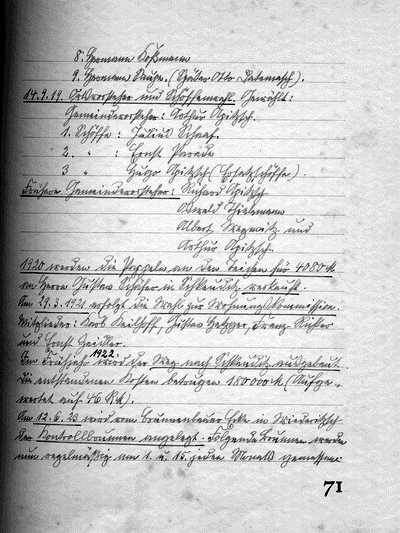 8. Hermann Roßmann
9. Hermann Kluge. (Später Otto Satemasch).
14.9.19. Ortsvorsteher und Schöffenwahl. Gewählt:
Gemeindevorsteher: Arthur Opitzsch.
1. Schöffe: Julius Scharf.
2. " : Ernst Parade
3 " Hugo Opitzsch (Ersatzschöffe).
Frühere Gemeindevorsteher: Richard Opitzsch
Oswald Thielemann
Albert Wegwitz und
Arthur Opitzsch.
1920 werden die Pappeln an den Teichen für 4080 M
an Herrn Gustav Schäfer in Schkeuditz verkauft.
Am 29.3.1921 erfolgt die Wahl zur Wohnungskommission.
Mitglieder: Karl Seilhoff, Gustav Hetzger, Franz Richter
und Ernst Heidler.
Im Frühjahr 1922 wird der Weg nach Schkeuditz ausgebaut.
Die entstandenen Kosten betrugen 180 000 M (Aufge-
wertet auf 46 M).
Am 12.6.23 wird vom Brunnenbauer in Wiederitzsch
der Kontrollbrunnen angelegt. Folgende Brunnen werden
nun regelmäßig am 1. u. 15. jeden Monats gemessen:
71